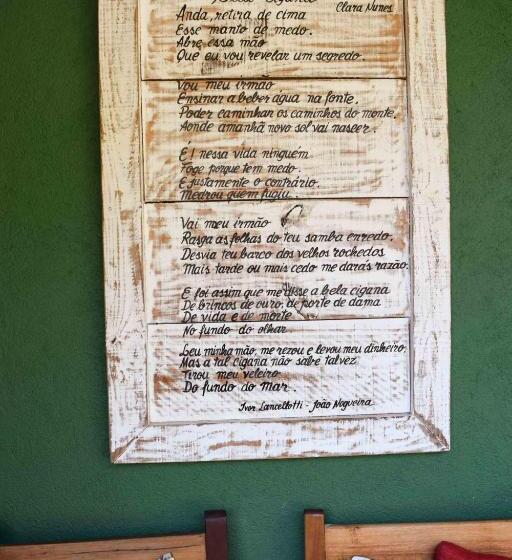 Clara Nunes
Anda, retira de cima
Esse manto de medo.
Abre essa mão
Que eu vou revelar um segredo.
Vou meu irmão
Ensinar a beber água na fonte.
Poder caminhar os caminhos do monte.
Aonde amanhã novo sol vai nascer.
E! nessa vida ninguém
Foge porque tem medo.
E justamente o contrário.
Medrou quem fugiu.
Vai meu irmão
Rasga as folhas do teu samba enredo.
Desvia teu barco dos velhos rochedos
Mais tarde ou mais cedo me darás razão.
E foi assim que me disse a bela cigana
De brincos de ouro, de porte de dama
De vida e de morte
No fundo do olhar
Leu minha mão, me rezou e levou meu dinheiro.
Mas a tal cigana não sabe talvez
Tirou meu veleiro
Do fundo do mar
Ivor Lancellotti - João Nogueira